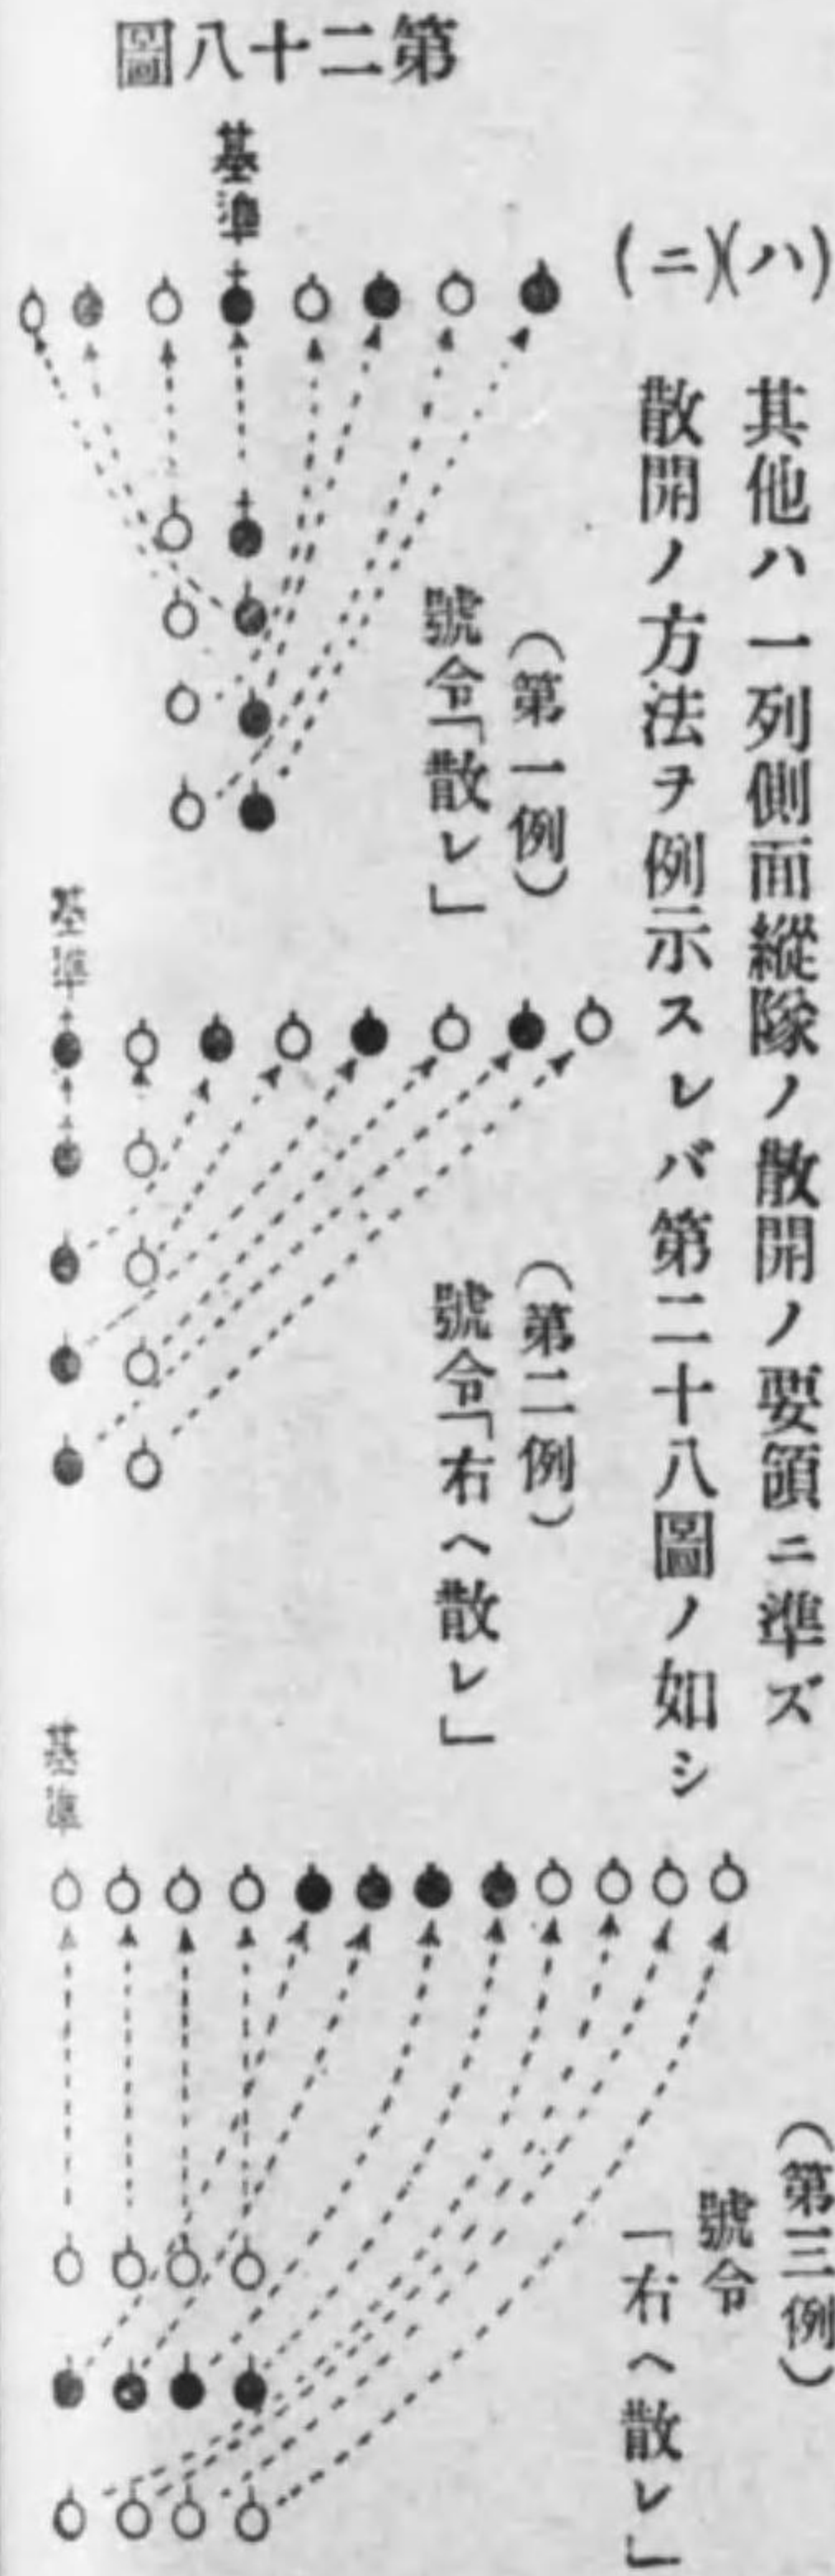 (ハ) 其他ハ一列側面縱隊ノ散開ノ要領ニ準ズ
(ニ) 散開ノ方法ヲ例示スレバ第二十八圖ノ如シ
第二十八圖
(第一例)
號令「散レ」
基準
(第二例)
號令「右ヘ散レ」
基準
(第三例)
號令
「右ヘ散レ」
基準